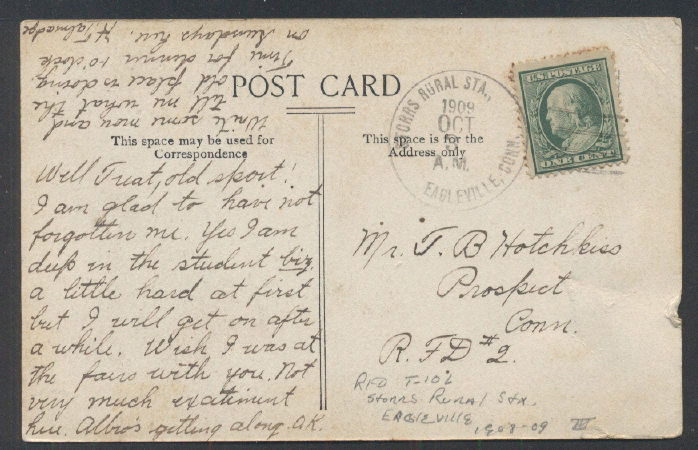 POST CARD
This space may be used for
Correspondence
This space is for the
Address only
STORRS RURAL STA.,
1909
OCT
A.M.
EAGLEVILLE, CONN.
U.S. POSTAGE
ONE CENT
Well Treat, old sport!
I am glad to have not
forgotten me. Yes I am
deep in the student biz.
a little hard at first
but I will get on after
a while. Wish I was at
the fairs with you. Not
very much exatiment
here. Albro's getting along O.K.
Write some more and
tell me what the
old place is doing.
Time for dinner 1 o'clock
on Sundays here. H. Talmadge
Mr. T. B Hotchkiss
Prospect
Conn.
R. F D #2.
RFD T-10b
Storrs Rural Sta.
EAGLEVILLE
1908-09 III